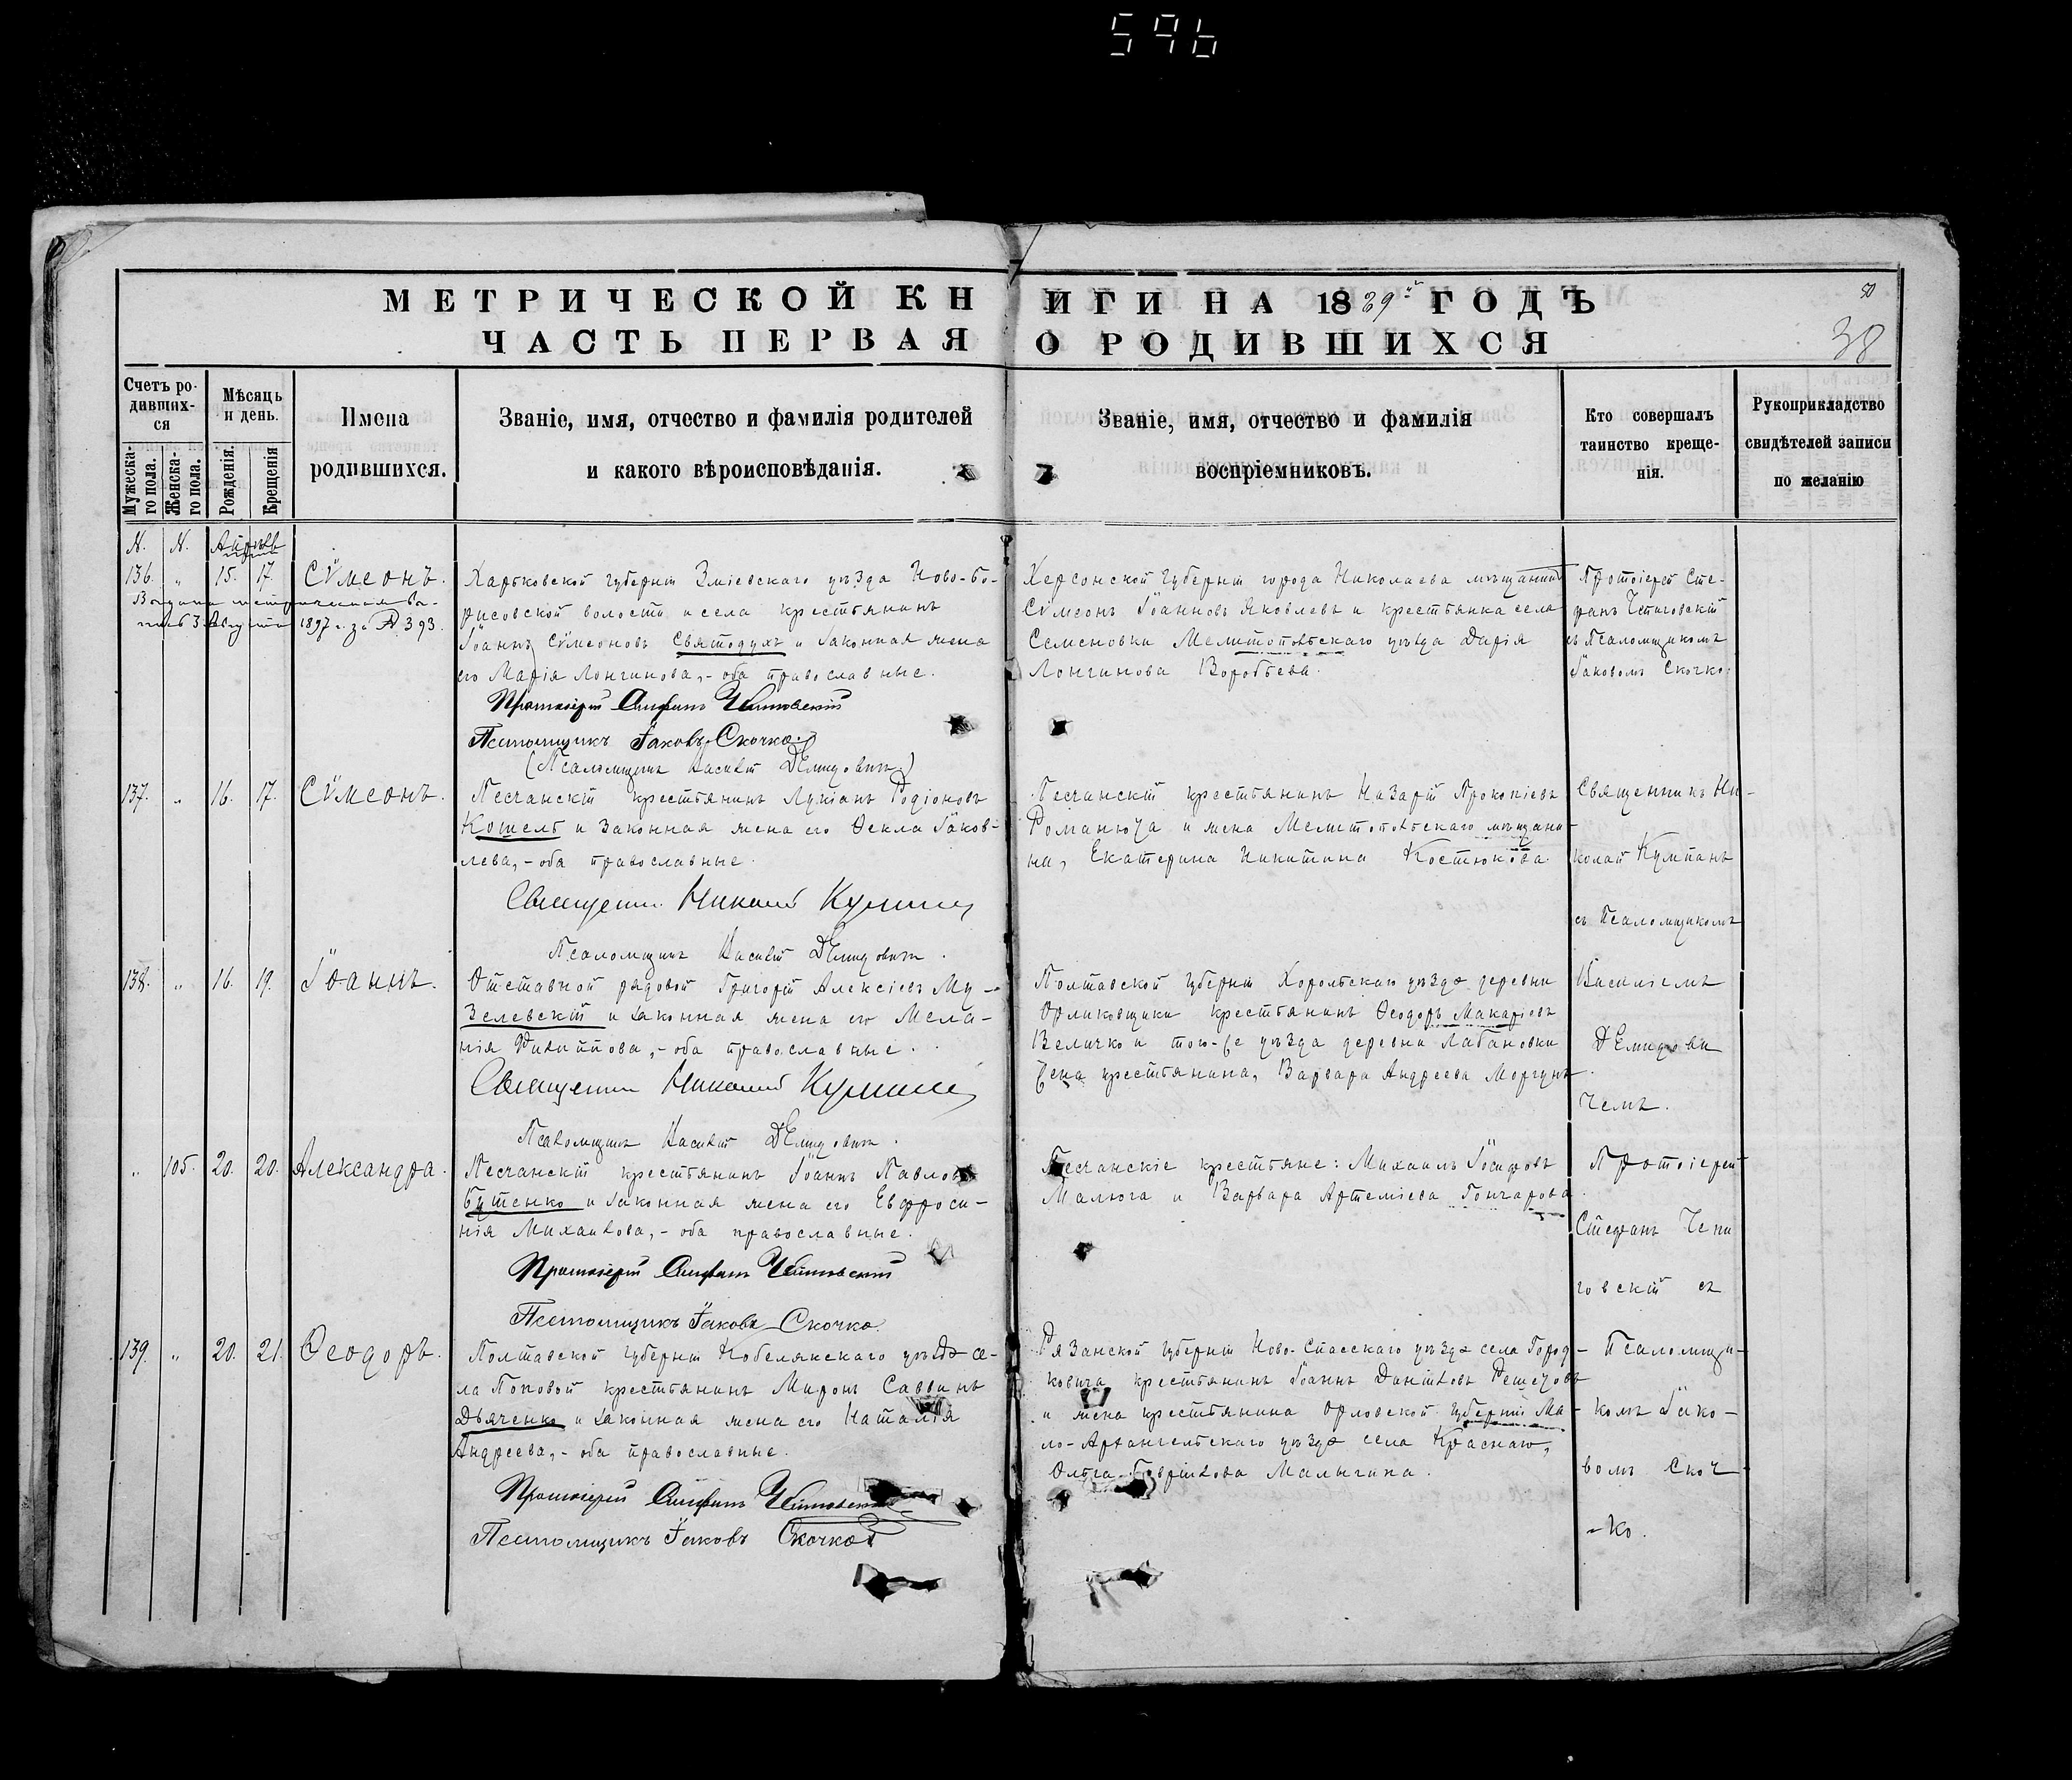 596
МЕТРИЧЕСКОЙ КНИГИ НА 1889й ГОДЪ
50
ЧАСТЬ ПЕРВАЯ О РОДИВШИХСЯ
38
Счетъ родившихся
Мужеска-го пола.
Женска-го пола.
Мѣсяцъ и день.
Рожденія.
Крещенія
Имена родившихся.
Званіе, имя, отчество и фамилія родителей
и какого вѣроисповѣданія.
Званіе, имя, отчество и фамилія
воспріемниковъ.
Кто совершалъ
таинство креще-
нія.
Рукоприкладство
свидѣтелей записи
по желанію
N. N. Апрѣль
136. " 15. 17. Сѵмеонъ.
Выдана метрическая вы-
пись 3 Августа 1897 г. за № 393.
Харьковской губерніи Зміевскаго уѣзда Ново-Бо-
рисовской волости и села крестьянинъ
Іоаннъ Сѵмеоновъ Святодухъ и законная жена
его Марія Лонгинова, - оба православные.
Протоіерей Стефанъ Чепиговскій
Псаломщикъ Іаковъ Скочко.
(Псаломщикъ Василій Демидовичъ)
Херсонской губерніи города Николаева мѣщанинъ
Сѵмеонъ Іоанновъ Яковлевъ и крестьянка села
Семеновки Мелитопольскаго уѣзда Дарія
Лонгинова Воробьева.
Протоіерей Сте-
фанъ Чепиговскій
съ Псаломщикомъ
Іаковомъ Скочко.
137. " 16. 17. Сѵмеонъ.
Песчанскій крестьянинъ Лукіанъ Родіоновъ
Кошель и законная жена его Ѳекла Іаков-
лева, - оба православные.
Священникъ Николай Кумпанъ
Псаломщикъ Василій Демидовичъ.
Песчанскій крестьянинъ Назарій Прокопіевъ
Романюта и жена Мелитопольскаго мѣщани-
на, Екатерина Никитина Костюкова
Священникъ Ни-
колай Кумпанъ
съ Псаломщикомъ
138. " 16. 19. Іоаннъ.
Отставной рядовой Григорій Алексіевъ Му-
зелевскій и законная жена его Мела-
нія Филиппова, - оба православные.
Священникъ Николай Кумпанъ
Псаломщикъ Василій Демидовичъ.
Полтавской губерніи Хорольскаго уѣзда деревни
Орликовщины крестьянинъ Ѳеодоръ Макаріевъ
Величко и того-же уѣзда деревни Лабановки
жена крестьянина, Варвара Андреева Моргунъ.
Василіемъ
Демидови
чемъ.
" 105. 20. 20. Александра.
Песчанскій крестьянинъ Іоаннъ Павловъ
Бутенко и законная жена его Евфроси-
нія Михаилова, - оба православные.
Протоіерей Стефанъ Чепиговскій
Псаломщикъ Іаковъ Скочко.
Песчанскіе крестьяне: Михаилъ Іосифовъ
Малюга и Варвара Артеміева Гончарова.
Протоіерей
Стефанъ Чепи
говскій съ
139. " 20. 21. Ѳеодоръ.
Полтавской губерніи Кобелякскаго уѣзда се-
ла Поповой крестьянинъ Миронъ Саввинъ
Дьяченко и законная жена его Наталія
Андреева, - оба православные.
Протоіерей Стефанъ Чепиговскій
Псаломщикъ Іаковъ Скочко
Рязанской губерніи Ново-Спасскаго уѣзда села Город-
ковича крестьянинъ Іоаннъ Даніиловъ Решетовъ
и жена крестьянина Орловской губерніи Ма-
ло-Архангельскаго уѣзда села Краснаго,
Ольга Гавріилова Малыгина.
Псаломщи-
комъ Іако-
вомъ Скоч
-ко.